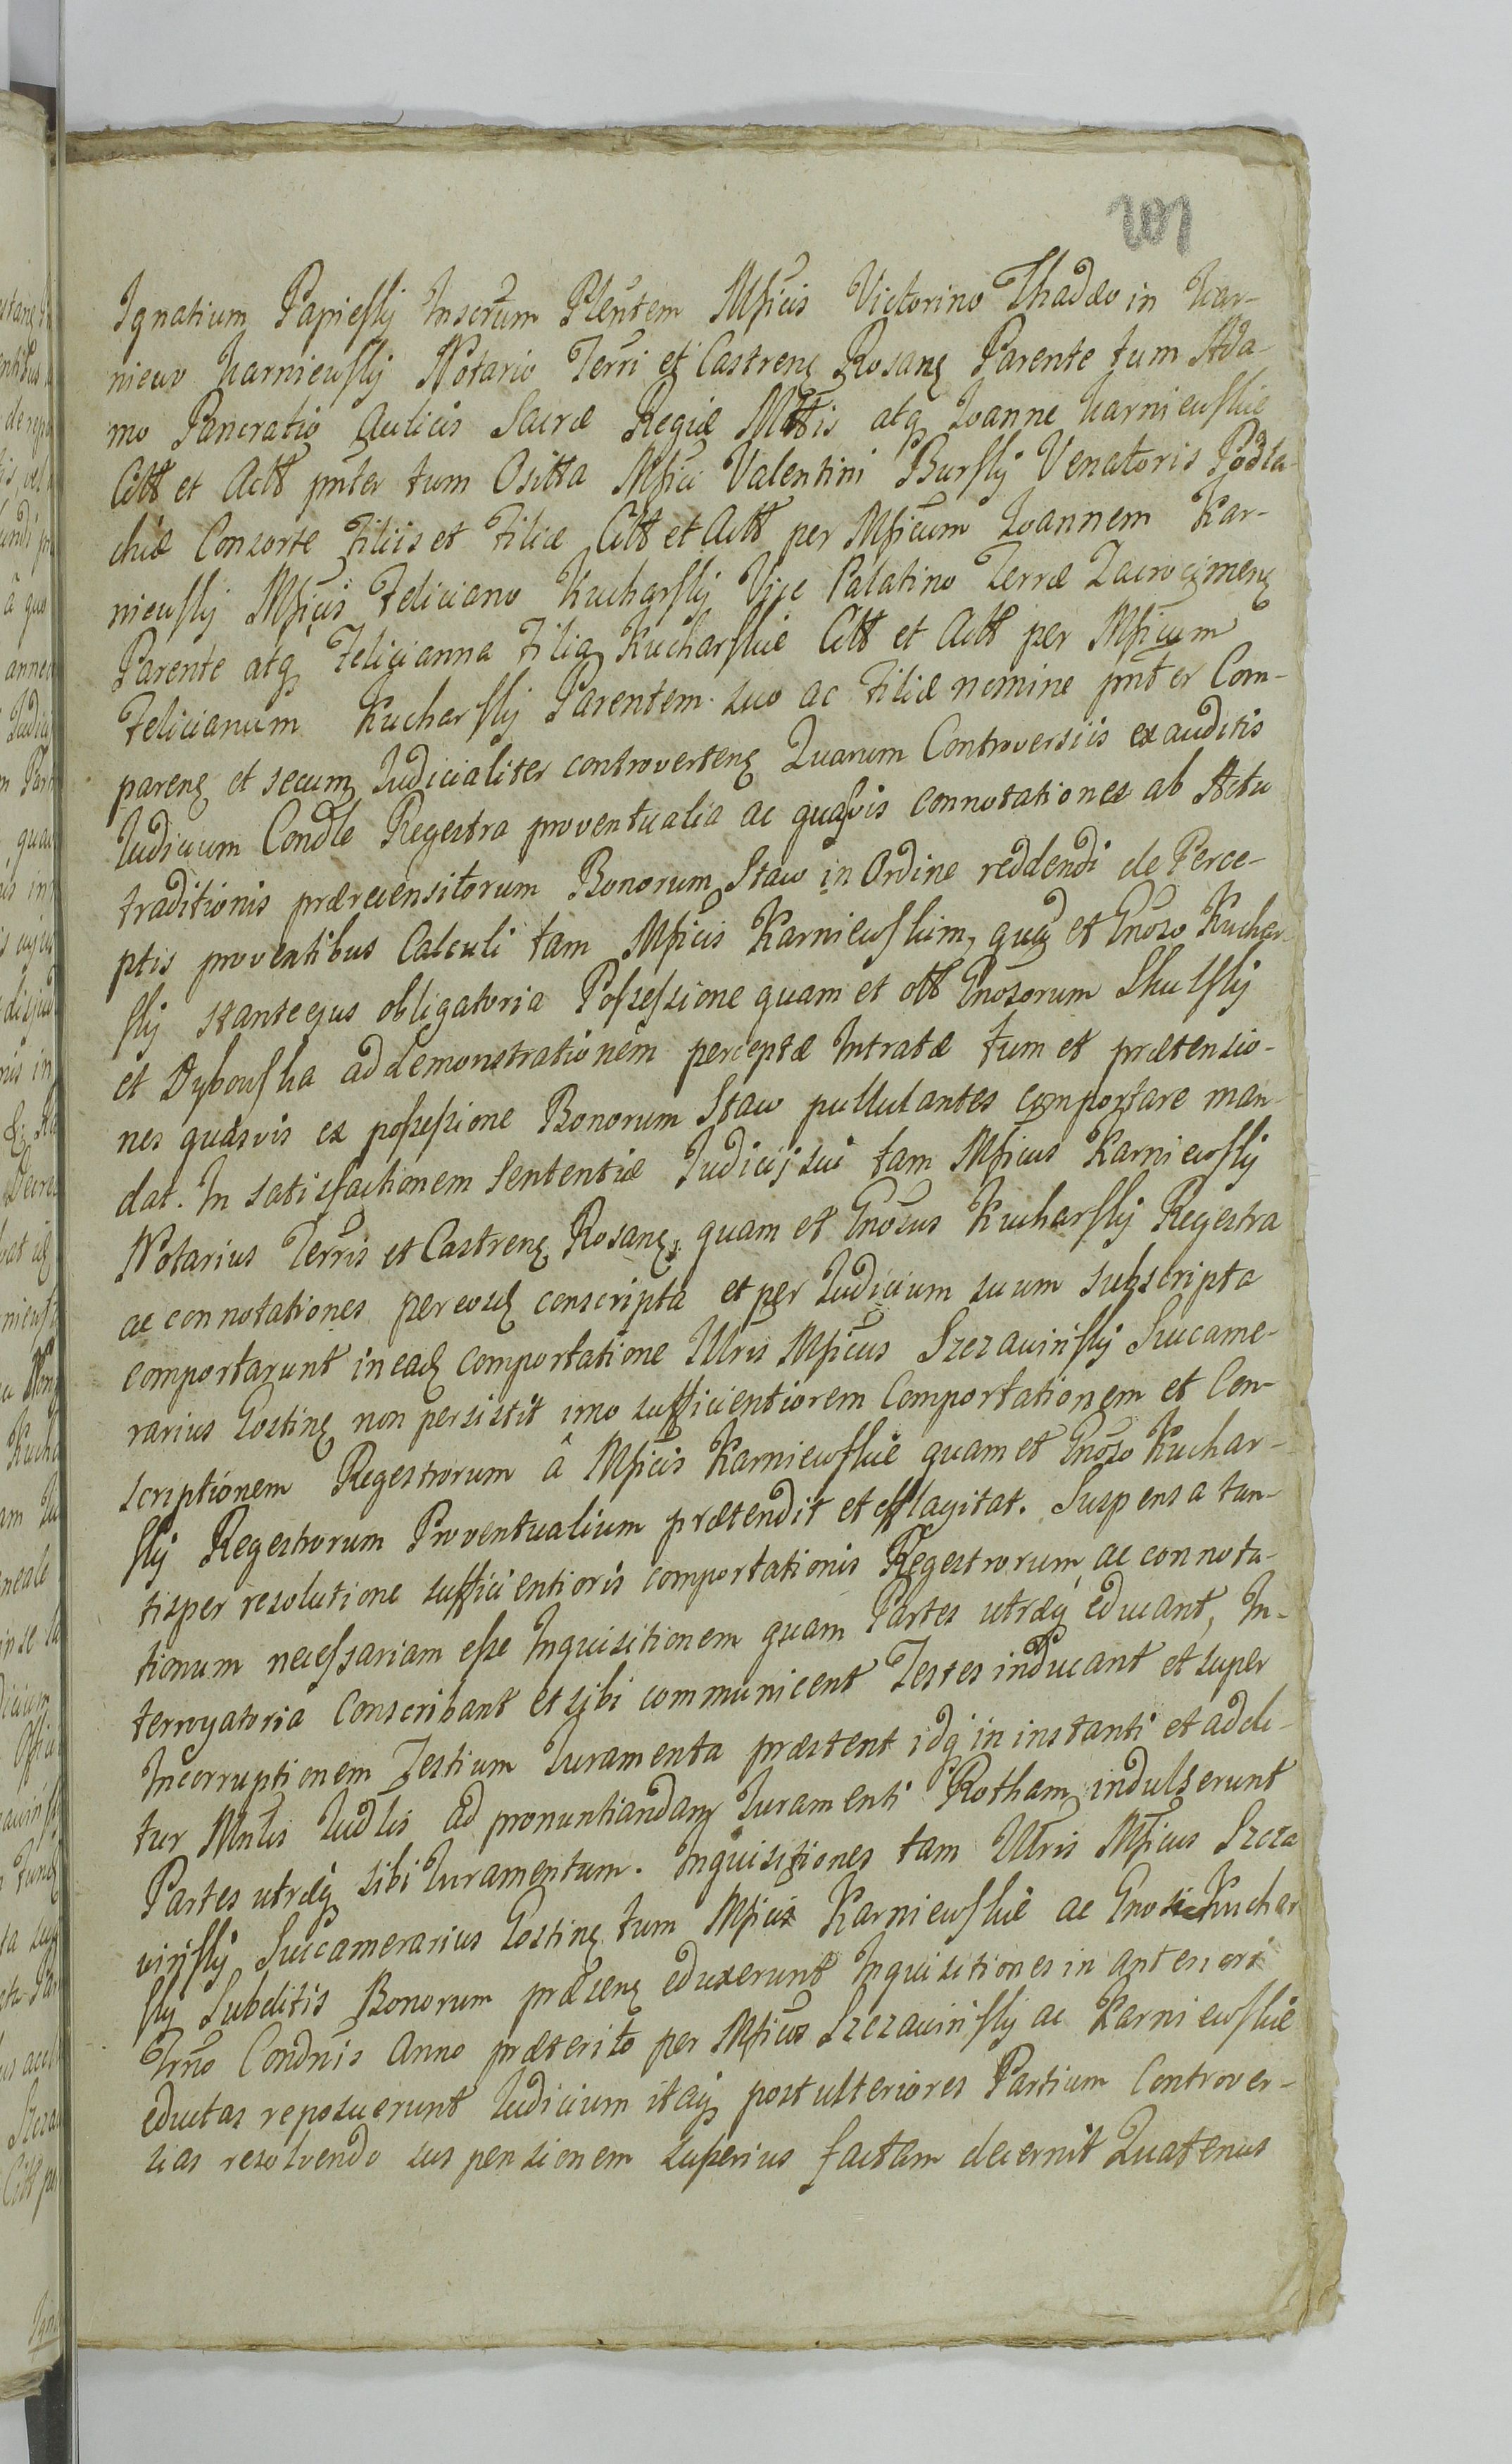 201
Ignatium Papieski Inscrum Plentem Mficis Victorino Thadæo in Kar-
niewo Karniewski Notario Terri et Castreng Rosang Parente tum Ada-
mo Pancratio Aulicis Sacræ Regiæ Mttis atq Ioanne Karniewskie
Citt et Actt pnter tum Ositta Mfici Valentini Burski Venatoris Podla-
chiæ Consorte Filiis et Filiæ Citt et Actt per Mficum Ioannem Kar-
niewski Mficis Feliciano Kucharski Vice Palatino Terræ Zacrocymeng
Parente atq Felicianna Filia Kucharskie Citt et Actt per Mficum
Felicianum Kucharski Parentem suo ac Filiæ nomine pnter Com-
pareng et secum Iudicialiter controverteng Quarum Controversiis exauditis
Iudicium Condle Regestra proventualia ac quasvis connotationes ab Actu
traditionis prærecensitorum Bonorum Staw in Ordine reddendi de Perce-
ptis proventibus Calculi tam Mficis Karniewskim, quam et Gnoso Kuchar-
ski stante ejus obligatoria Possessione quam et ott Gnosorum Skulski
et Dybowska ad demonstrationem perceptæ Intratæ tum et prætensio-
nes quasvis ex possessione Bonorum Staw pullulantes comportare man-
dat. In satisfactionem Sententiæ Iudicij sui tam Mficus Karniewski
Notarius Terris et Castreng Rosang, quam et Gnosus Kucharski Regestra
ac connotationes per eosd conscripta et per Iudicium suum subscripta
comportarunt in ead comportatione Ultris Mficus Szczawinski Succame-
rarius Gosting non persistit imo sufficientiorem Comportationem et Con-
scriptionem Regestrorum â Mficis Karniewskie quam et Gnoso Kuchar-
ski Regestrorum Proventualium prætendit et efflagitat. Suspensa tan-
tisper resolutione sufficientioris comportationis Regestrorum ac connota-
tionum necessariam esse Inquisitionem quam Partes utræq educant, In-
terrogatoria Conscribant et sibi communicent Testes inducant et super
Incorruptionem Testium Iuramenta præstent idq in instanti et adde-
tur Mnlis Iudlis ad pronuntiandam Iuramenti Rotham indulserunt
Partes utræq sibi Iuramentum. Inquisitiones tam Ultris Mficus Szcza
winski Succamerarius Gosting tum Mficis Karniewskie ac Gnosi Kuchar
ski Subditis Bonorum præseng eduxerunt Inquisitiones in anteriori
Trno Condnis Anno præterito per Mficos Szczawinski ac Karniewskie
eductas reposuerunt Iudicium itaq post ulteriores Partium Controver-
sias resolvendo suspensionem superius factam decernit Quatenus